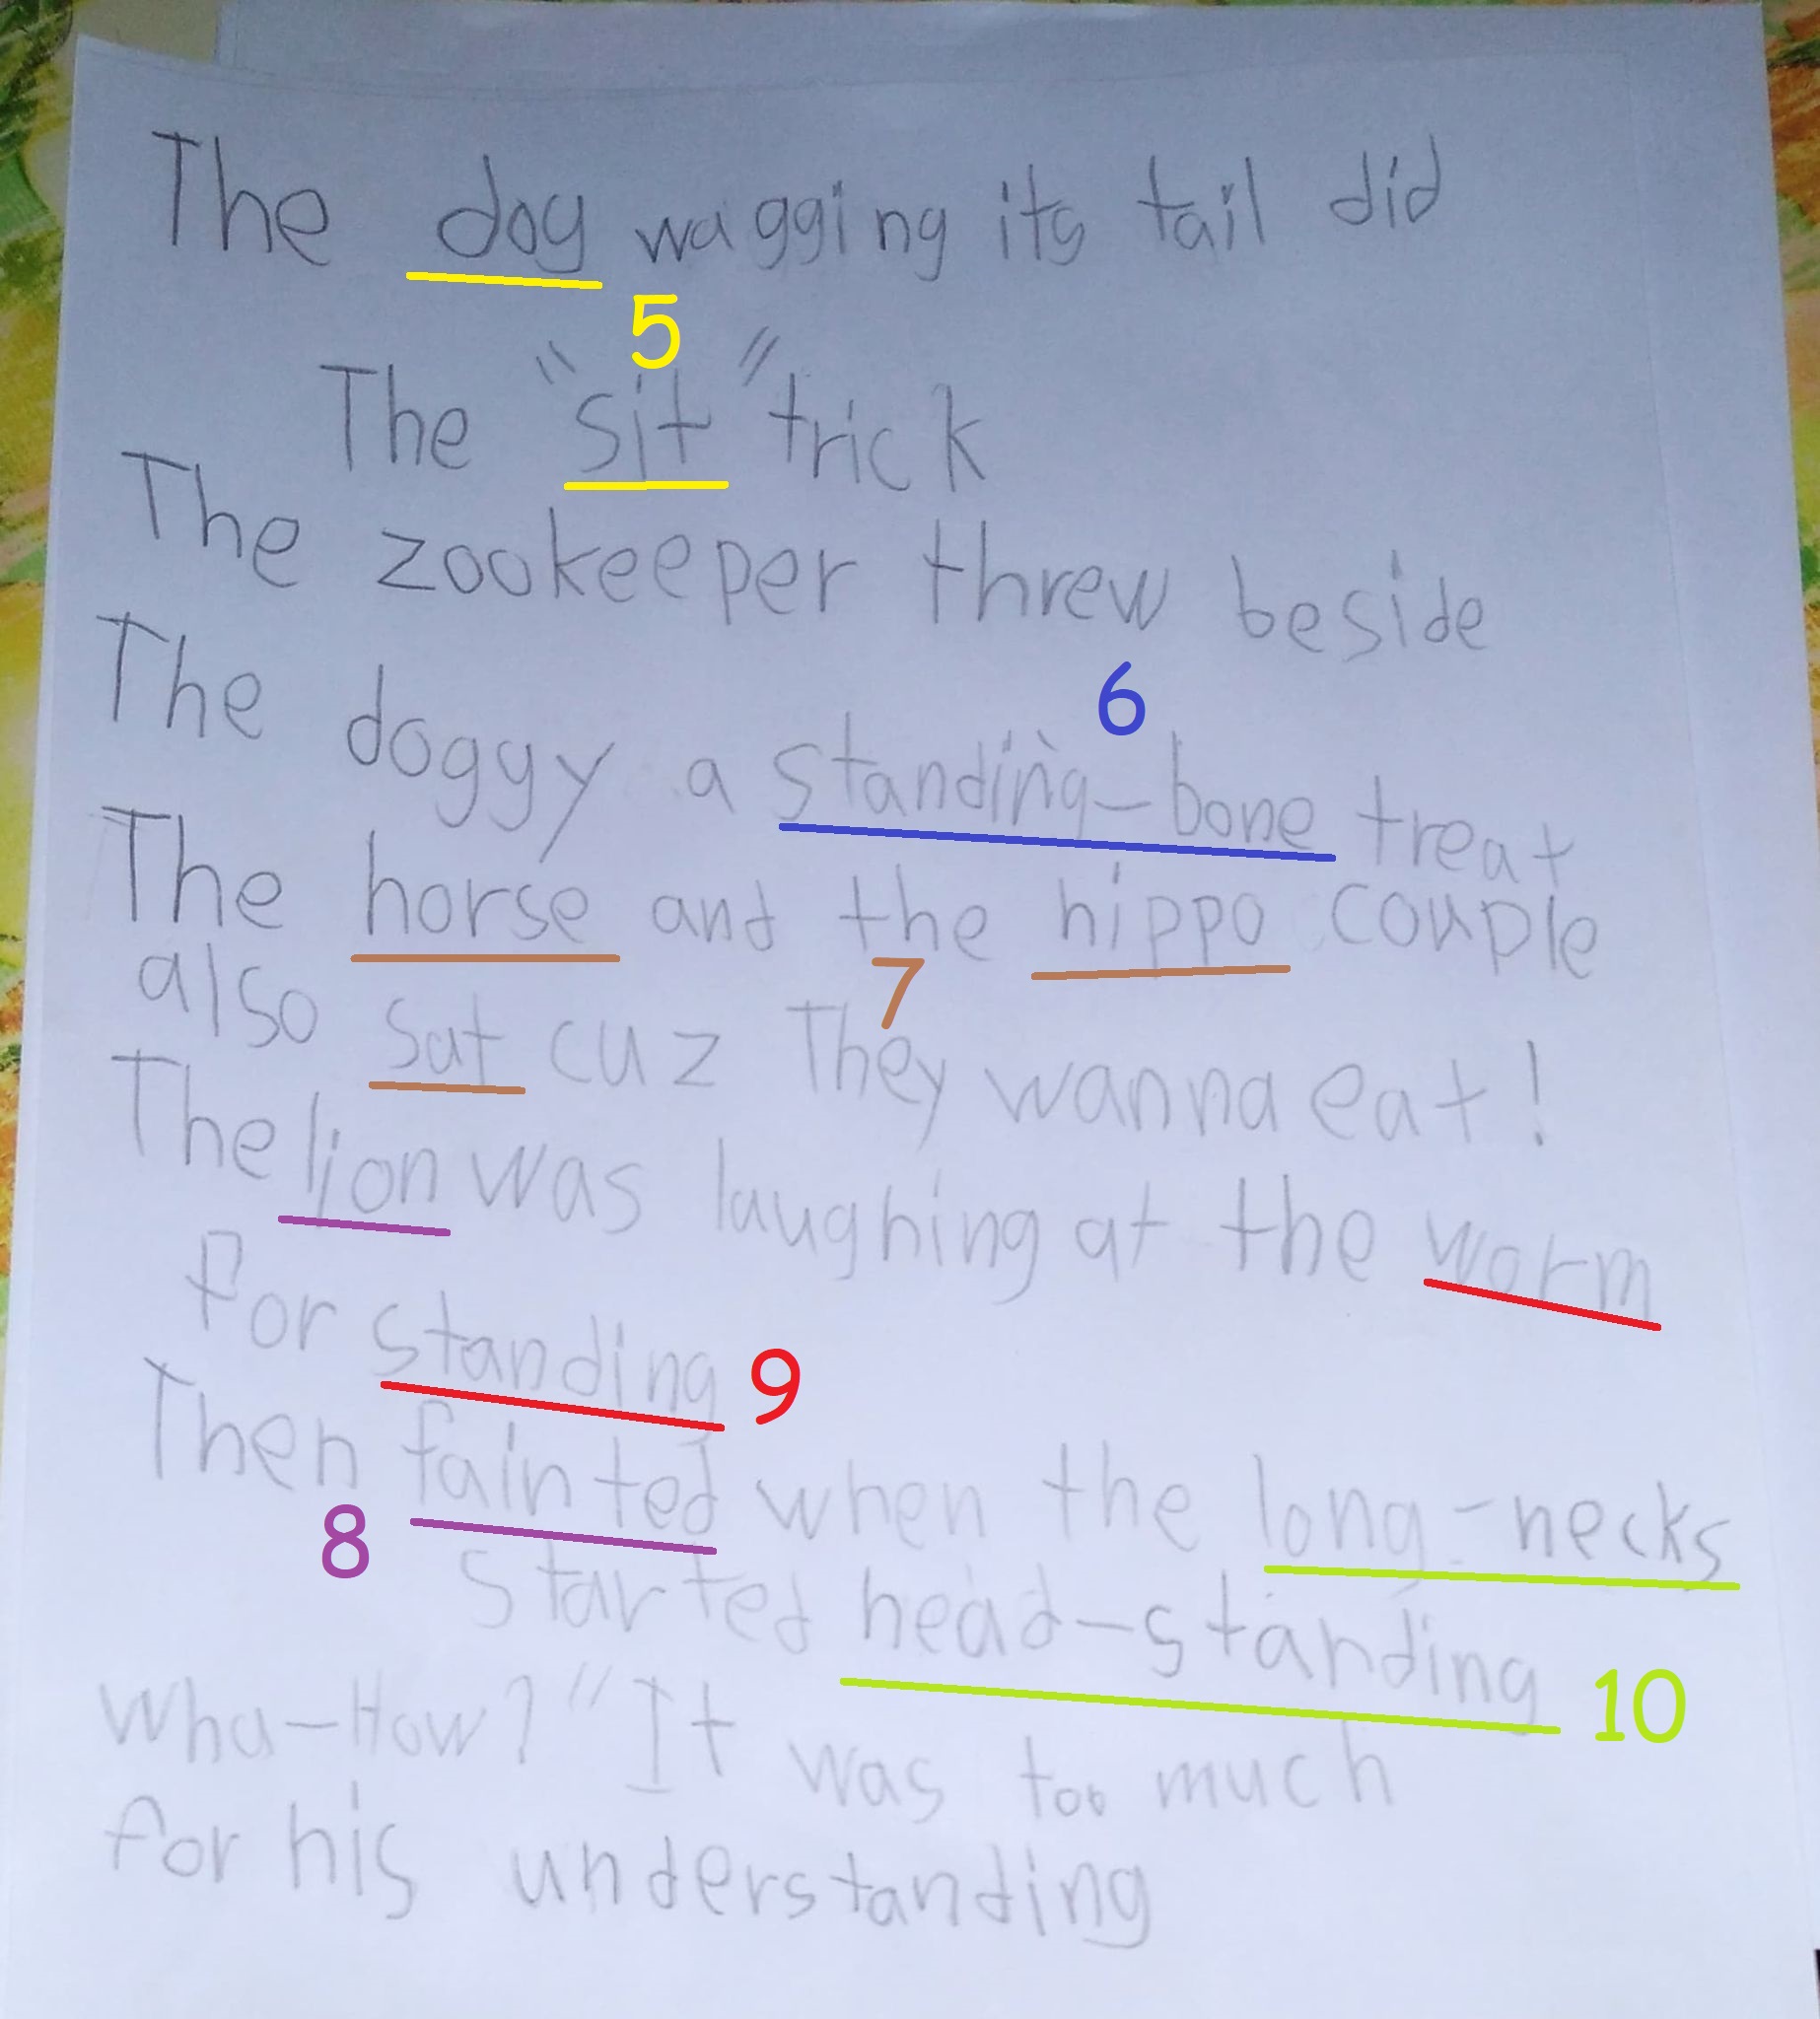 The dog wagging its tail did
5
The "sit" trick
The zookeeper threw beside
6
The doggy a standing-bone treat
The horse and the hippo couple
7
also sat cuz They wanna eat!
The lion was laughing at the worm
for standing 9
Then fainted when the long-necks
8
started head-standing 10
Wha-How?" It was too much
for his understanding